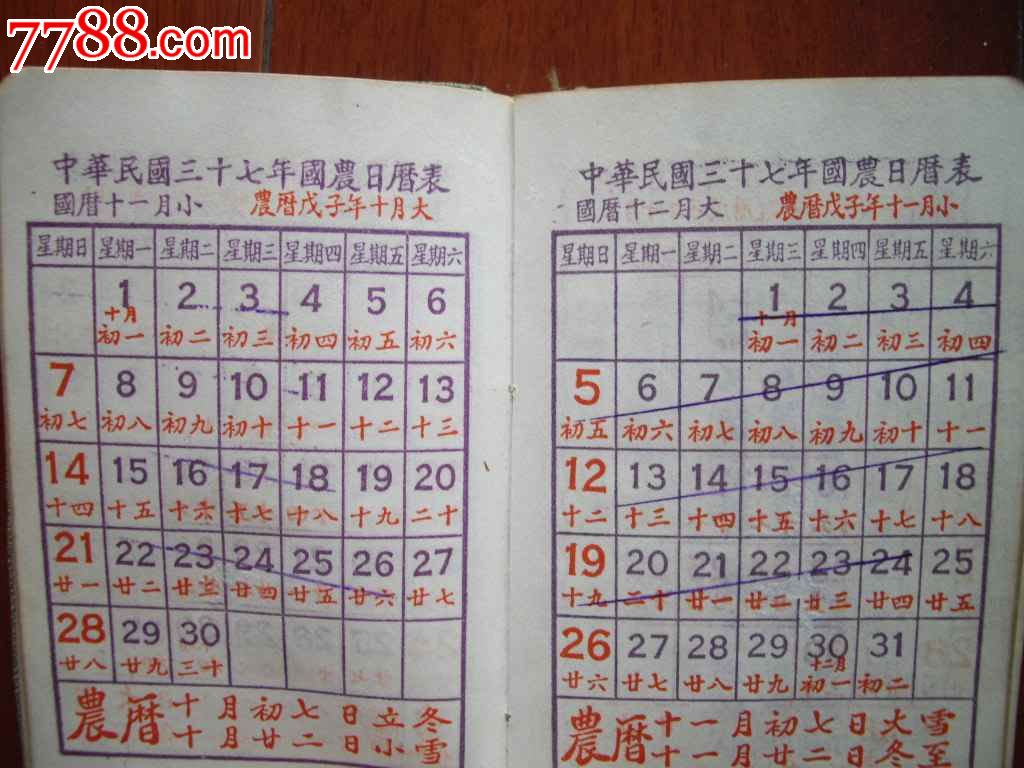 7788.com
中國收藏熱線
中華民國三十七年國農日曆表
國曆十一月小 農曆戊子年十月大
星期日 星期一 星期二 星期三 星期四 星期五 星期六
1 2 3 4 5 6
十月
初一 初二 初三 初四 初五 初六
7 8 9 10 11 12 13
初七 初八 初九 初十 十一 十二 十三
14 15 16 17 18 19 20
十四 十五 十六 十七 十八 十九 二十
21 22 23 24 25 26 27
廿一 廿二 廿三 廿四 廿五 廿六 廿七
28 29 30
廿八 廿九 三十
農曆十月初七日立冬
十月廿二日小雪
中華民國三十七年國農日曆表
國曆十二月大 農曆戊子年十一月小
星期日 星期一 星期二 星期三 星期四 星期五 星期六
1 2 3 4
十一月
初一 初二 初三 初四
5 6 7 8 9 10 11
初五 初六 初七 初八 初九 初十 十一
12 13 14 15 16 17 18
十二 十三 十四 十五 十六 十七 十八
19 20 21 22 23 24 25
十九 二十 廿一 廿二 廿三 廿四 廿五
26 27 28 29 30 31
十二月
廿六 廿七 廿八 廿九 初一 初二
農曆十一月初七日大雪
十一月廿二日冬至